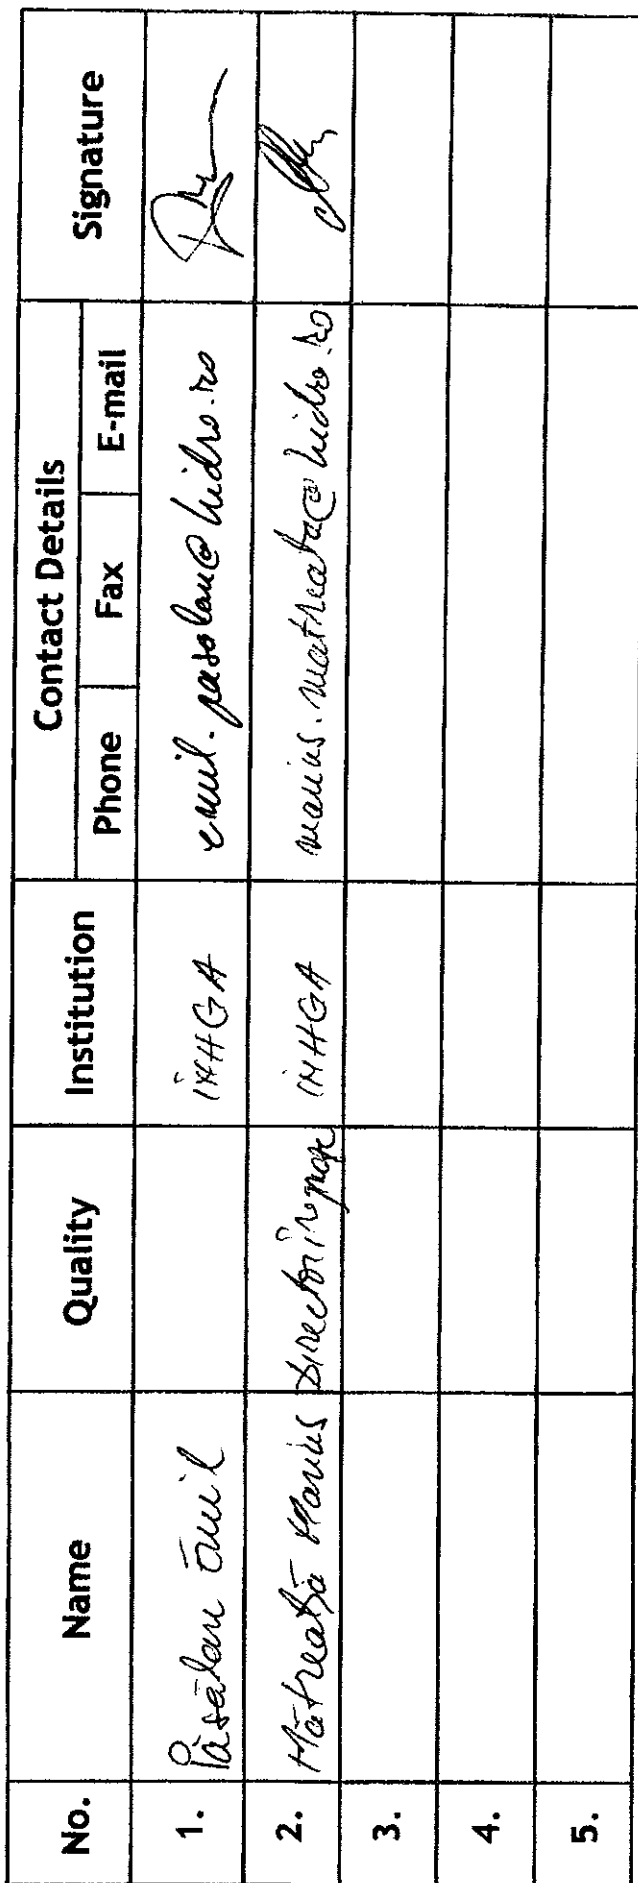 No. Name Quality Institution Contact Details Signature
Phone Fax E-mail
1. Păsălan Emil INHGA emil.pasalau@hidro.ro
2. Mătreață Marius Director INHGA marius.matreata@hidro.ro
3.
4.
5.